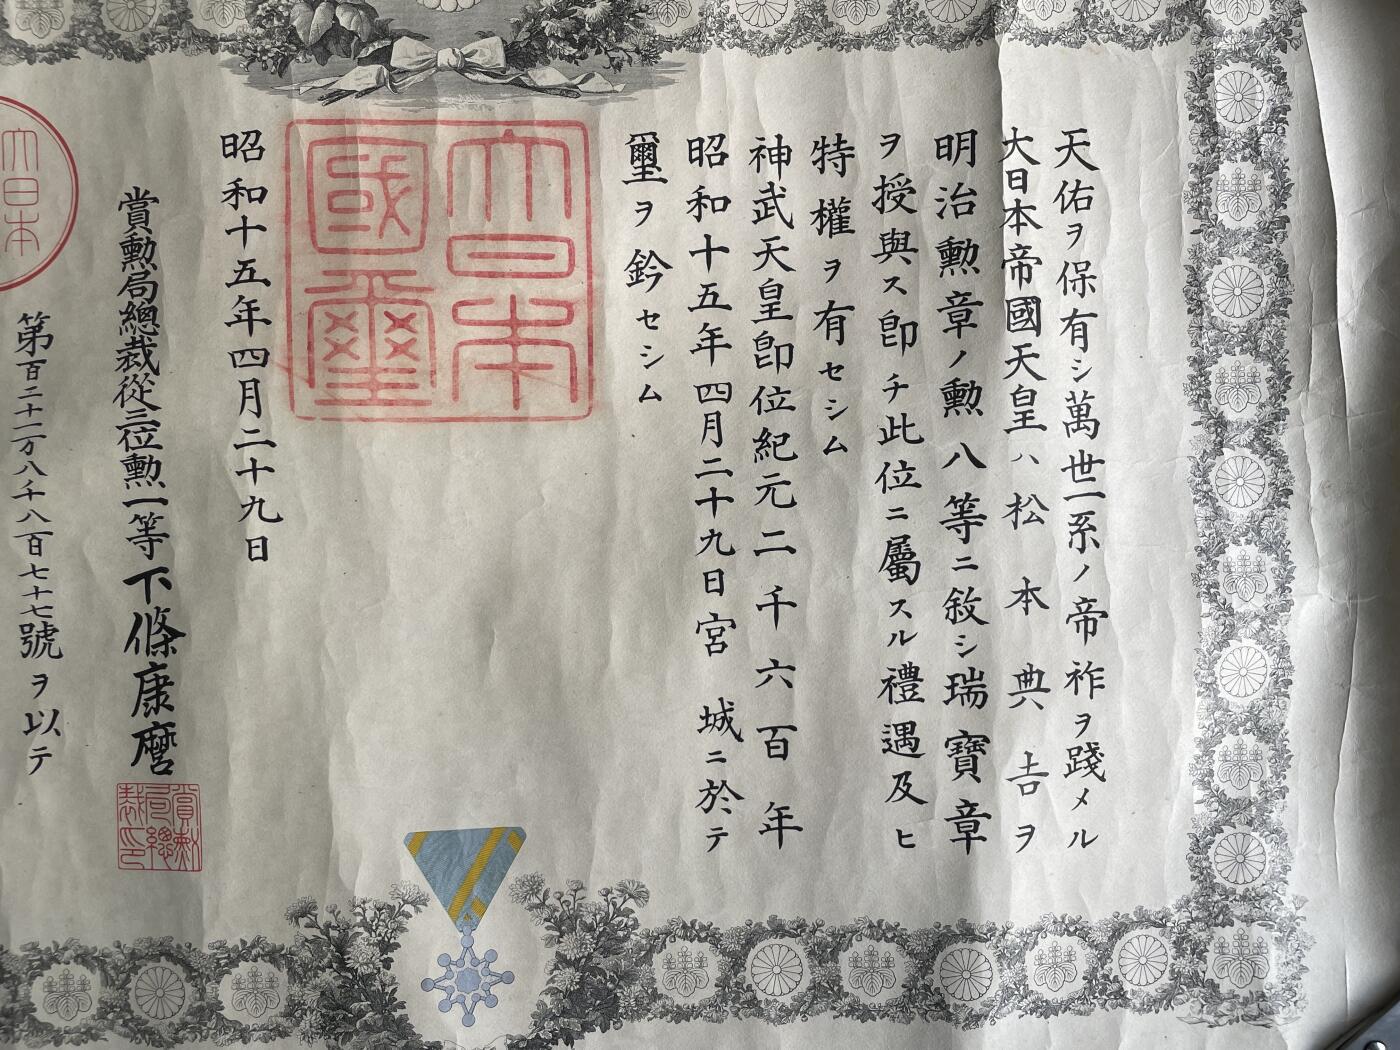 天佑ヲ保有シ萬世一系ノ帝祚ヲ踐メル
大日本帝國天皇ハ松本典𠮷ヲ
明治勲章ノ勲八等ニ敘シ瑞寶章
ヲ授與ス卽チ此位ニ屬スル禮遇及ヒ
特權ヲ有セシム
神武天皇卽位紀元二千六百年
昭和十五年四月二十九日宮城ニ於テ
璽ヲ鈐セシム
大日本
國璽
昭和十五年四月二十九日
賞勲局總裁從三位勲一等下條康麿
賞勲
局總
裁印
第百二十二万八千八百七十七號ヲ以テ
大日本